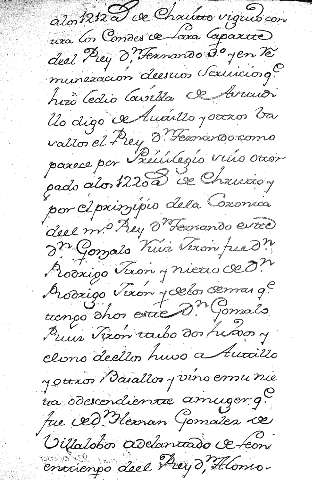 a los 1212 a de Christo siguio con
tra los Condes de Lara la parte
de el Rey Dn Fernando 3º y en Re
muneracion de esus Servicios q.
hizo le dio la villa de
llo digo de Autillo y otros Va
sallos el Rey Dn Fernando como
parece por Privilegio suio otor
gado a los 1220 a de Christo y
por el prinzipio de la Coronica
de el mo Rey Dn Fernando este
Dn Gonzalo Ruiz Jiron fue de Dn
Rodrigo Jiron y nieto de Dn
Rodrigo Jiron y de los demas q.
tengo dhos este Dn Gonzalo
Ruiz Jiron tubo dos hijos y
el uno de ellos huvo a Autillo
y otros Basallos y vino en su nie
ta o descendiente a muger q.
fue de Dn Hernan Gomalez de
Villalobos adelantado de Leon
en tienpo de el Rey Dn Alonso